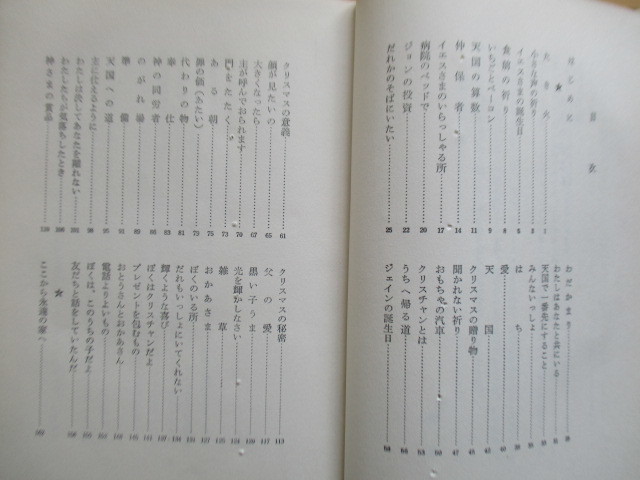 目次
はじめに
★
たき火
小さな声の祈り
イエスさまの誕生日
食前の祈り
いちごとベーコン 9
天国の算数 11
仲保者 14
イエスさまのいらっしゃる所 17
病院のベッドで 20
ジョンの投資 22
だれかのそばにいたい 25
わたしはあなたと共にいる
天国で一番先にすること
みんないっしょ
はち
愛
天国
クリスマスの贈り物
聞かれない祈り
おもちゃの汽車
クリスチャンとは
うちへ帰る道
ジェインの誕生日
クリスマスの意義 61
顔が見たいの 65
大きくなったら 67
主が呼んでおられます 70
門をたたく 73
ある朝 75
御の価（あたい） 79
代わりの物 81
奉仕 83
神の同労者
のがれ場
準備
天国への道
主に仕えるように
わたしは決してあなたを離れない
わたしたちが気落ちしたとき
神さまの賞品
クリスマスの秘密 113
父の愛 117
黒い子うま
光を輝かしなさい
雑草
おかあさま
ぼくのいる所
だれもいっしょにいてくれない
輝くような喜び
ぼくはクリスチャンだよ
プレゼントを包むもの
おとうさんとおかあさん
電話よりよいもの
ぼくは、このうちの子だよ
友だちと話をしていたんだ
★
ここから永遠の家へ